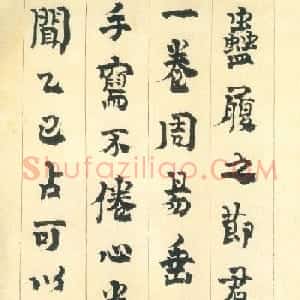 蠱履之節君
一卷周易垂
手寫不倦心
聞乙巳占可以
Shufaziliao.COM